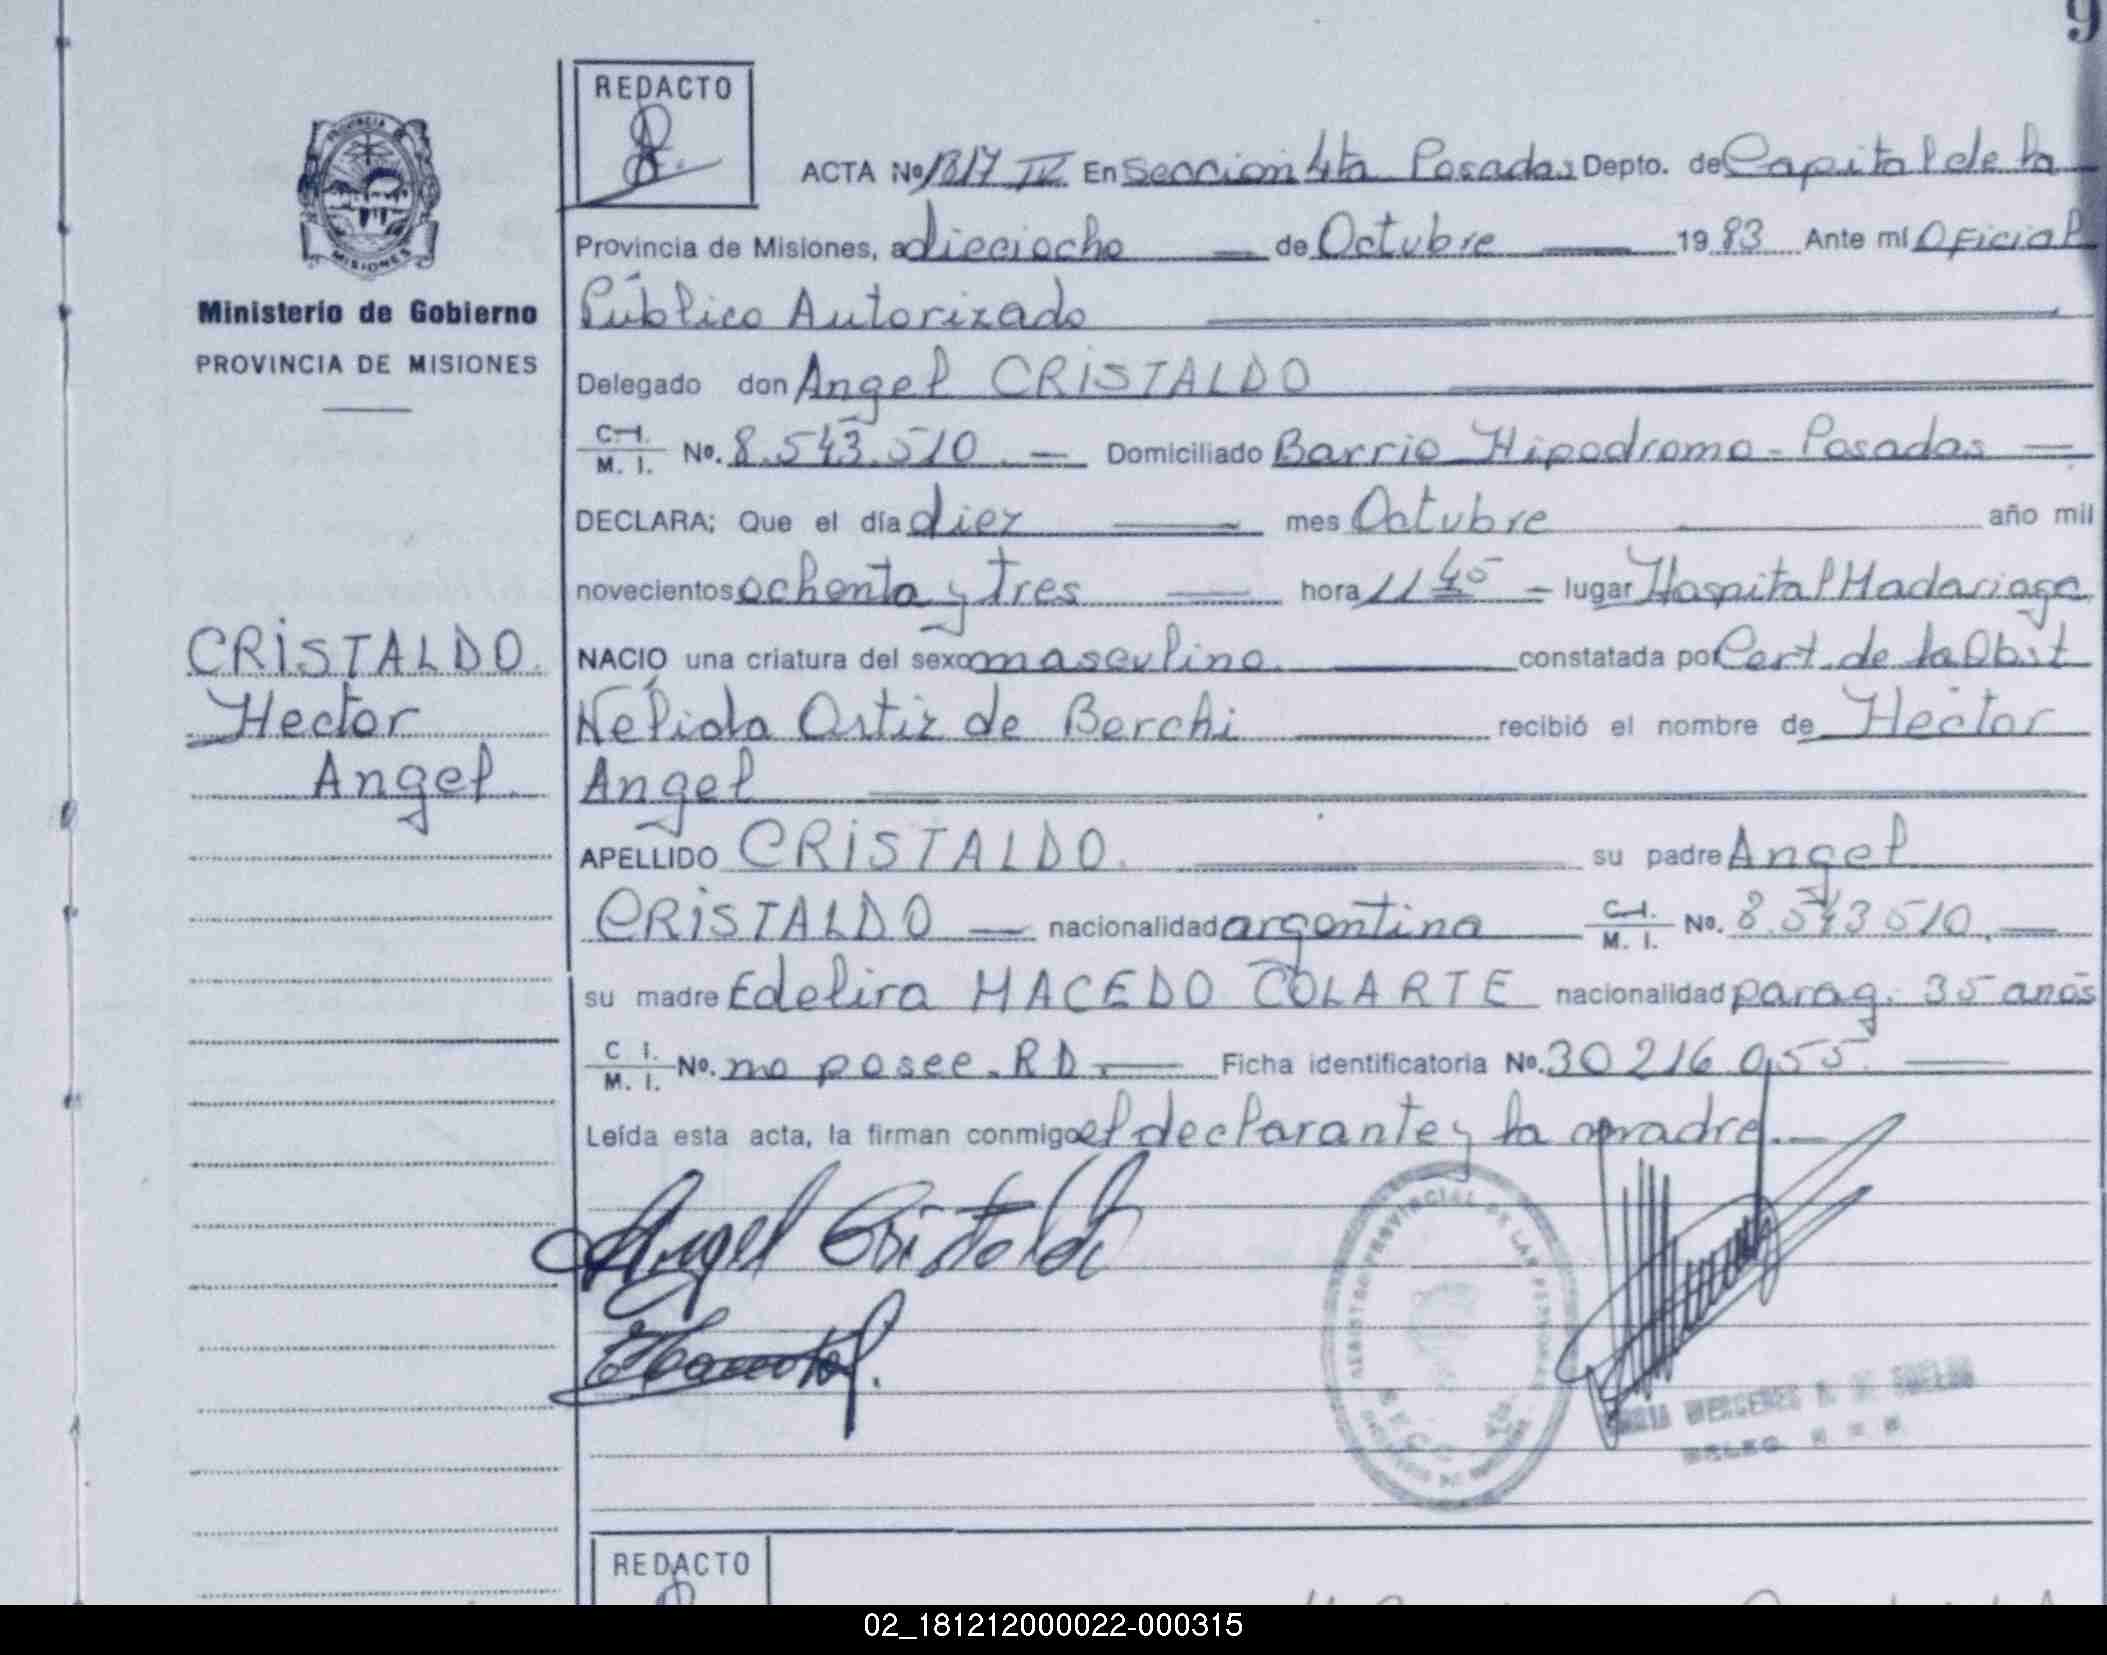 9
REDACTO
ACTA No 1317 IV En Seccion 4ta Posadas Depto. de Capital de la
Provincia de Misiones, a dieciocho — de Octubre — 1983 Ante mí Oficial
Público Autorizado
Delegado don Angel CRISTALDO
C.I. M. I. No. 8.543.510. — Domiciliado Barrio Hipodromo - Posadas —
DECLARA; Que el día diez — mes Octubre — año mil
novecientos ochenta y tres — hora 11 45 — lugar Hospital Madariaga
NACIO una criatura del sexo masculino. — constatada por Cert. de la Obst
Nélida Ortiz de Berchi — recibió el nombre de Hector
Angel
APELLIDO CRISTALDO. — su padre Angel
CRISTALDO — nacionalidad argentina C.I. M. I. No. 8.543510. —
su madre Edelira MACEDO COLARTE nacionalidad parag. 35 años
C I. M. I. No. no posee. RD. — Ficha identificatoria No. 30216055. —
Leída esta acta, la firman conmigo el declarante y la madre. —
Angel Cristaldo
PROVINCIA DE MISIONES
Ministerio de Gobierno
PROVINCIA DE MISIONES
CRISTALDO.
Hector
Angel.
REGISTRO PROVINCIAL DE LAS PERSONAS
REDACTO
02_181212000022-000315